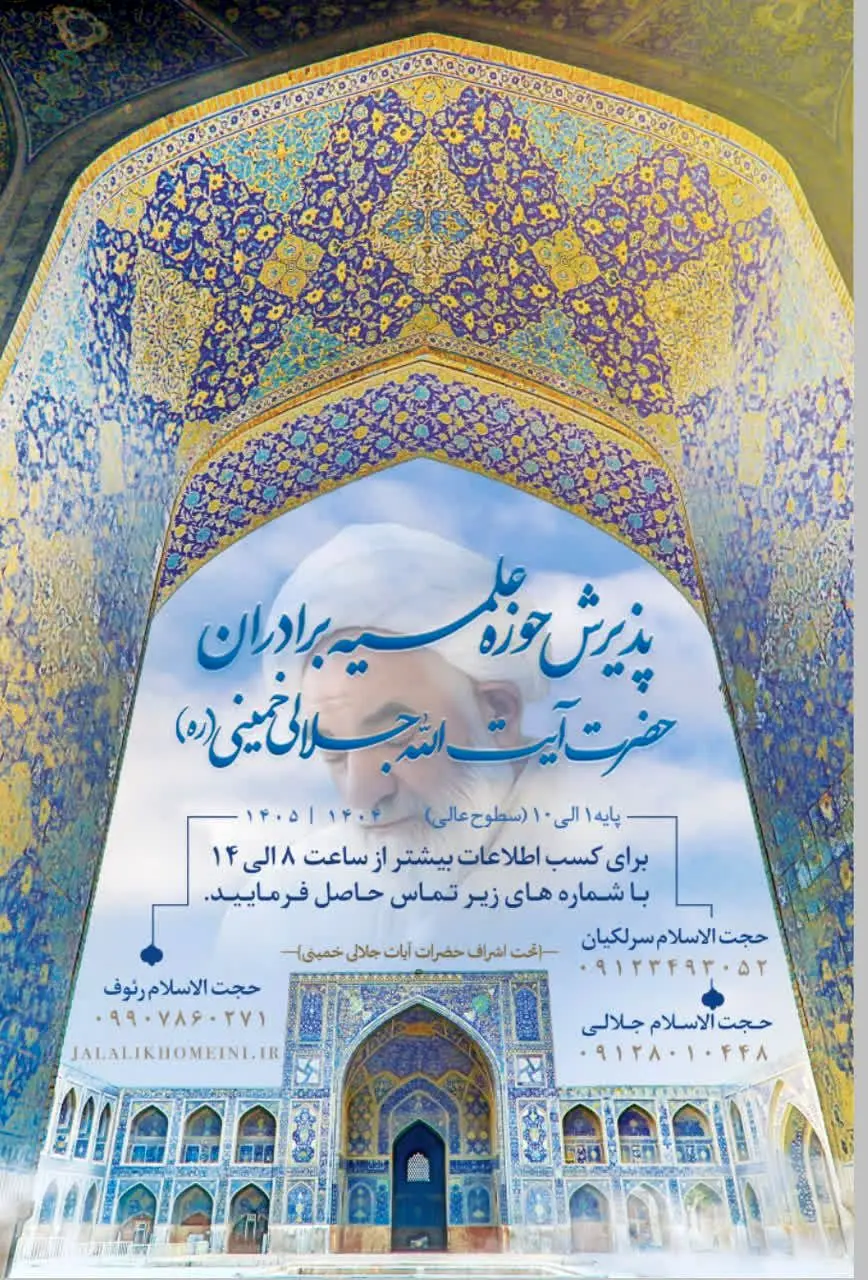 پذیرش حوزه علمیه برادران
حضرت آیت الله جلالی خمینی (ره)
پایه ۱ الی ۱۰ (سطوح عالی) ۱۴۰۴ | ۱۴۰۵
برای کسب اطلاعات بیشتر از ساعت ۸ الی ۱۴
با شماره های زیر تماس حاصل فرمایید.
حجت الاسلام سرلکیان
۰۹۱۲۳۴۹۳۰۵۲
(تحت اشراف حضرات آیات جلالی خمینی)
حجت الاسلام رئوف
۰۹۹۰۷۸۶۰۲۷۱
حجت الاسلام جلالی
۰۹۱۲۸۰۱۰۴۴۸
JALALIKHOMEINI.IR